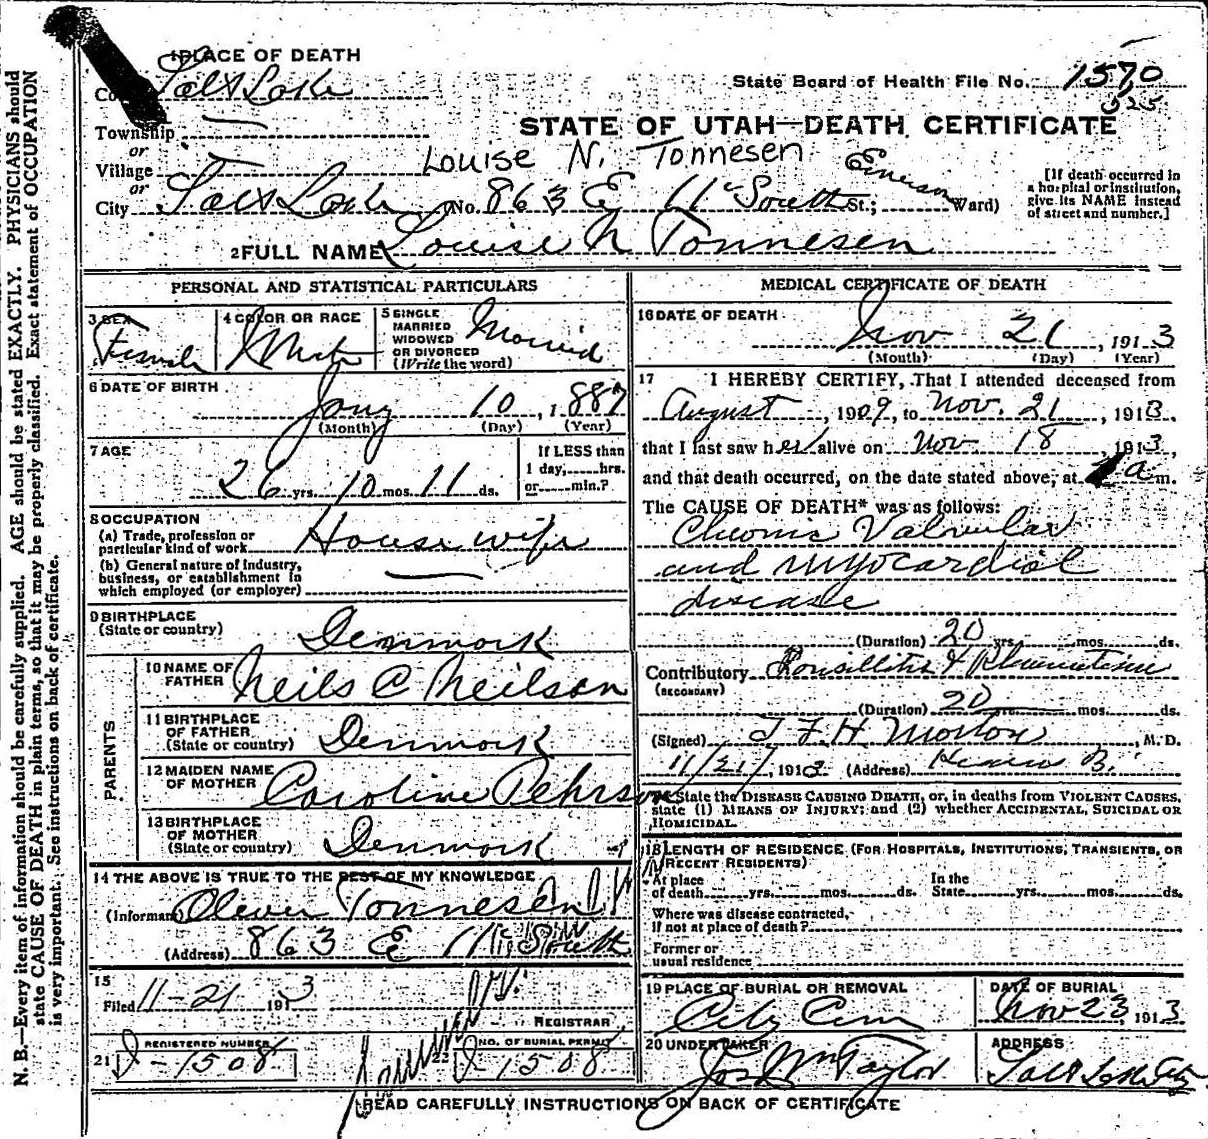 1 PLACE OF DEATH
Co Salt Lake
State Board of Health File No. 1570
525
Township —
or
STATE OF UTAH—DEATH CERTIFICATE
Village —
Louise N. Tonnesen
or
City Salt Lake (No. 863 E 11th South St.; Ward)
[If death occurred in a hospital or institution, give its NAME instead of street and number.]
2 FULL NAME Louise N Tonnesen
PERSONAL AND STATISTICAL PARTICULARS
3 SEX
Female
4 COLOR OR RACE
White
5 SINGLE
MARRIED
WIDOWED
OR DIVORCED
(Write the word)
Married
6 DATE OF BIRTH
Jany 10, 1887
(Month) (Day) (Year)
7 AGE
26 yrs. 10 mos. 11 ds.
If LESS than
1 day, hrs.
or min.?
8 OCCUPATION
(a) Trade, profession or
particular kind of work House wife
(b) General nature of industry,
business, or establishment in
which employed (or employer) —
9 BIRTHPLACE
(State or country) Denmark
PARENTS
10 NAME OF
FATHER Neils C Neilson
11 BIRTHPLACE
OF FATHER
(State or country) Denmark
12 MAIDEN NAME
OF MOTHER Caroline Pehrson
13 BIRTHPLACE
OF MOTHER
(State or country) Denmark
14 THE ABOVE IS TRUE TO THE BEST OF MY KNOWLEDGE
(Informant) Oliver Tonnesen
(Address) 863 E 11th South
15
Filed 11-21 1913
REGISTRAR
REGISTERED NUMBER
21 D-1508
NO. OF BURIAL PERMIT
22 D-1508
MEDICAL CERTIFICATE OF DEATH
16 DATE OF DEATH
Nov 21, 1913
(Month) (Day) (Year)
17 I HEREBY CERTIFY, That I attended deceased from
August, 1909, to Nov. 21, 1913,
that I last saw her alive on Nov 18, 1913,
and that death occurred, on the date stated above, at a m.
The CAUSE OF DEATH* was as follows:
Chronic Valvular
and myocardial
disease
(Duration) 20 yrs. mos. ds.
Contributory Tonsillitis & Rheumatism
(SECONDARY)
(Duration) 20 yrs. mos. ds.
(Signed) T F. H. Morton, M. D.
11/21/, 1913 (Address) B.
*State the DISEASE CAUSING DEATH, or, in deaths from VIOLENT CAUSES,
state (1) MEANS OF INJURY; and (2) whether ACCIDENTAL, SUICIDAL OR
HOMICIDAL.
18 LENGTH OF RESIDENCE (FOR HOSPITALS, INSTITUTIONS, TRANSIENTS, OR
RECENT RESIDENTS)
At place
of death yrs. mos. ds.
In the
State yrs. mos. ds.
Where was disease contracted,
if not at place of death?
Former or
usual residence
19 PLACE OF BURIAL OR REMOVAL
City Cem
DATE OF BURIAL
Nov 23, 1913
20 UNDERTAKER
Jos Wm Taylor
ADDRESS
Salt Lake City
READ CAREFULLY INSTRUCTIONS ON BACK OF CERTIFICATE
N. B.—Every item of information should be carefully supplied. AGE should be stated EXACTLY. PHYSICIANS should
state CAUSE OF DEATH in plain terms, so that it may be properly classified. Exact statement of OCCUPATION
is very important. See instructions on back of certificate.